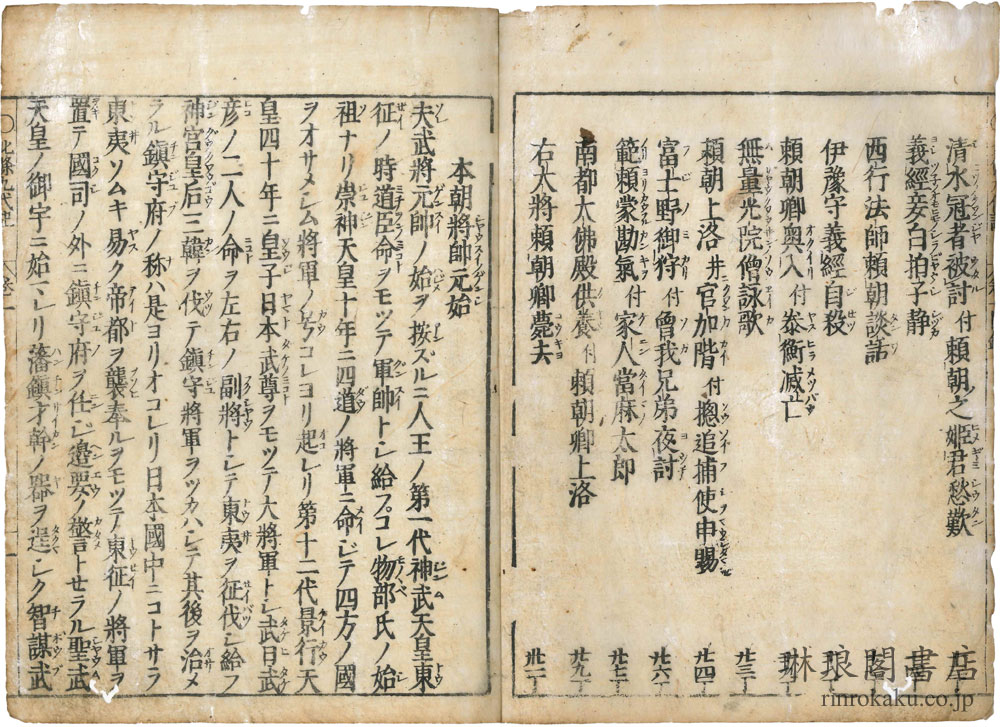 清水冠者被討付頼朝之姫君愁歎
義經妾白拍子静
西行法師頼朝談話
伊豫守義經自殺
頼朝卿奥入付泰衡滅亡
無量光院僧詠歌
頼朝上洛并官加階付摠追捕使申賜 廿四丁
冨士野御狩付曽我兄弟夜討 廿六丁
範頼蒙勘氣付家人當麻太郎 廿七丁
南都大佛殿供養付頼朝卿上洛 廿九丁
右大將頼朝卿薨去
本朝將帥元始
夫武將元帥ノ始ヲ按ズルニ人王ノ第一代神武天皇東
征ノ時道臣命ヲモツテ軍帥トシ給フコレ物部氏ノ始
祖ナリ崇神天皇十年ニ四道ノ將軍ニ命ジテ四方ノ國
ヲオサメシム將軍ノ号コレヨリ起レリ第十二代景行天
皇四十年ニ皇子日本武尊ヲモツテ大將軍トシ武日武
彦ノ二人ノ命ヲ左右ノ副將トシテ東夷ヲ征伐シ給フ
神宮皇后三韓ヲ伐テ鎮守將軍ヲツカハシテ其後ヲ治メ
ラル鎮守府ノ称ハ是ヨリオコレリ日本國中ニコトサラ
東夷ソムキ易ク帝都ヲ襲奉ルヲモツテ東征ノ將軍ヲ
置テ國司ノ外ニ鎮守府ヲ仕ジ邉要ノ警トセラル聖武
天皇ノ御宇ニ始マレリ藩鎮才幹ノ器ヲ逞シク智謀武
北條九代
琳琅閣書店
rinrokaku.co.jp